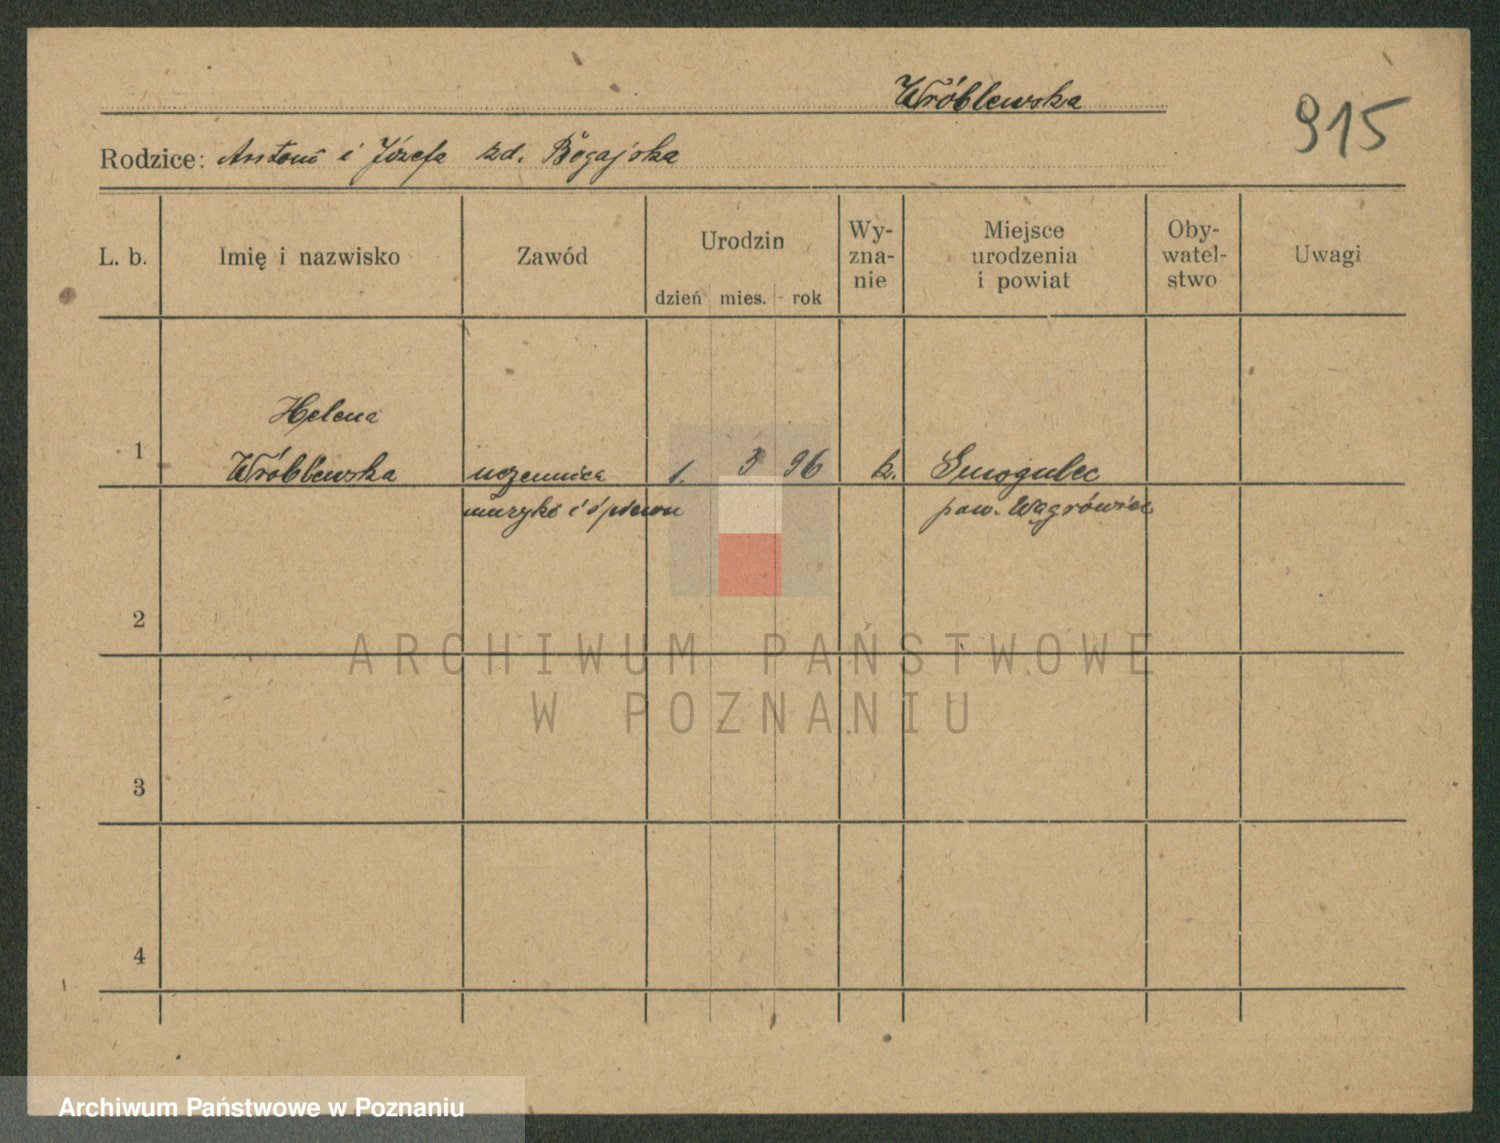 Wróblewska
915
Rodzice: Antoni i Józefa zd. Bogajska
L. b. Imię i nazwisko Zawód Urodzin dzień mies. rok Wy-zna-nie Miejsce urodzenia i powiat Oby-watel-stwo Uwagi
Helena
1 Wróblewska uczennica 1. 3 96 k. Smogulec
muzyki i śpiewu pow. Wągrówiec
2
ARCHIWUM PAŃSTWOWE
W POZNANIU
3
4
Archiwum Państwowe w Poznaniu